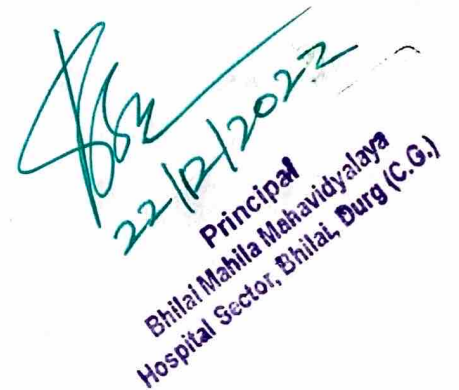 22/12/2022
Principal
Bhilai Mahila Mahavidyalaya
Hospital Sector, Bhilai, Durg (C.G.)